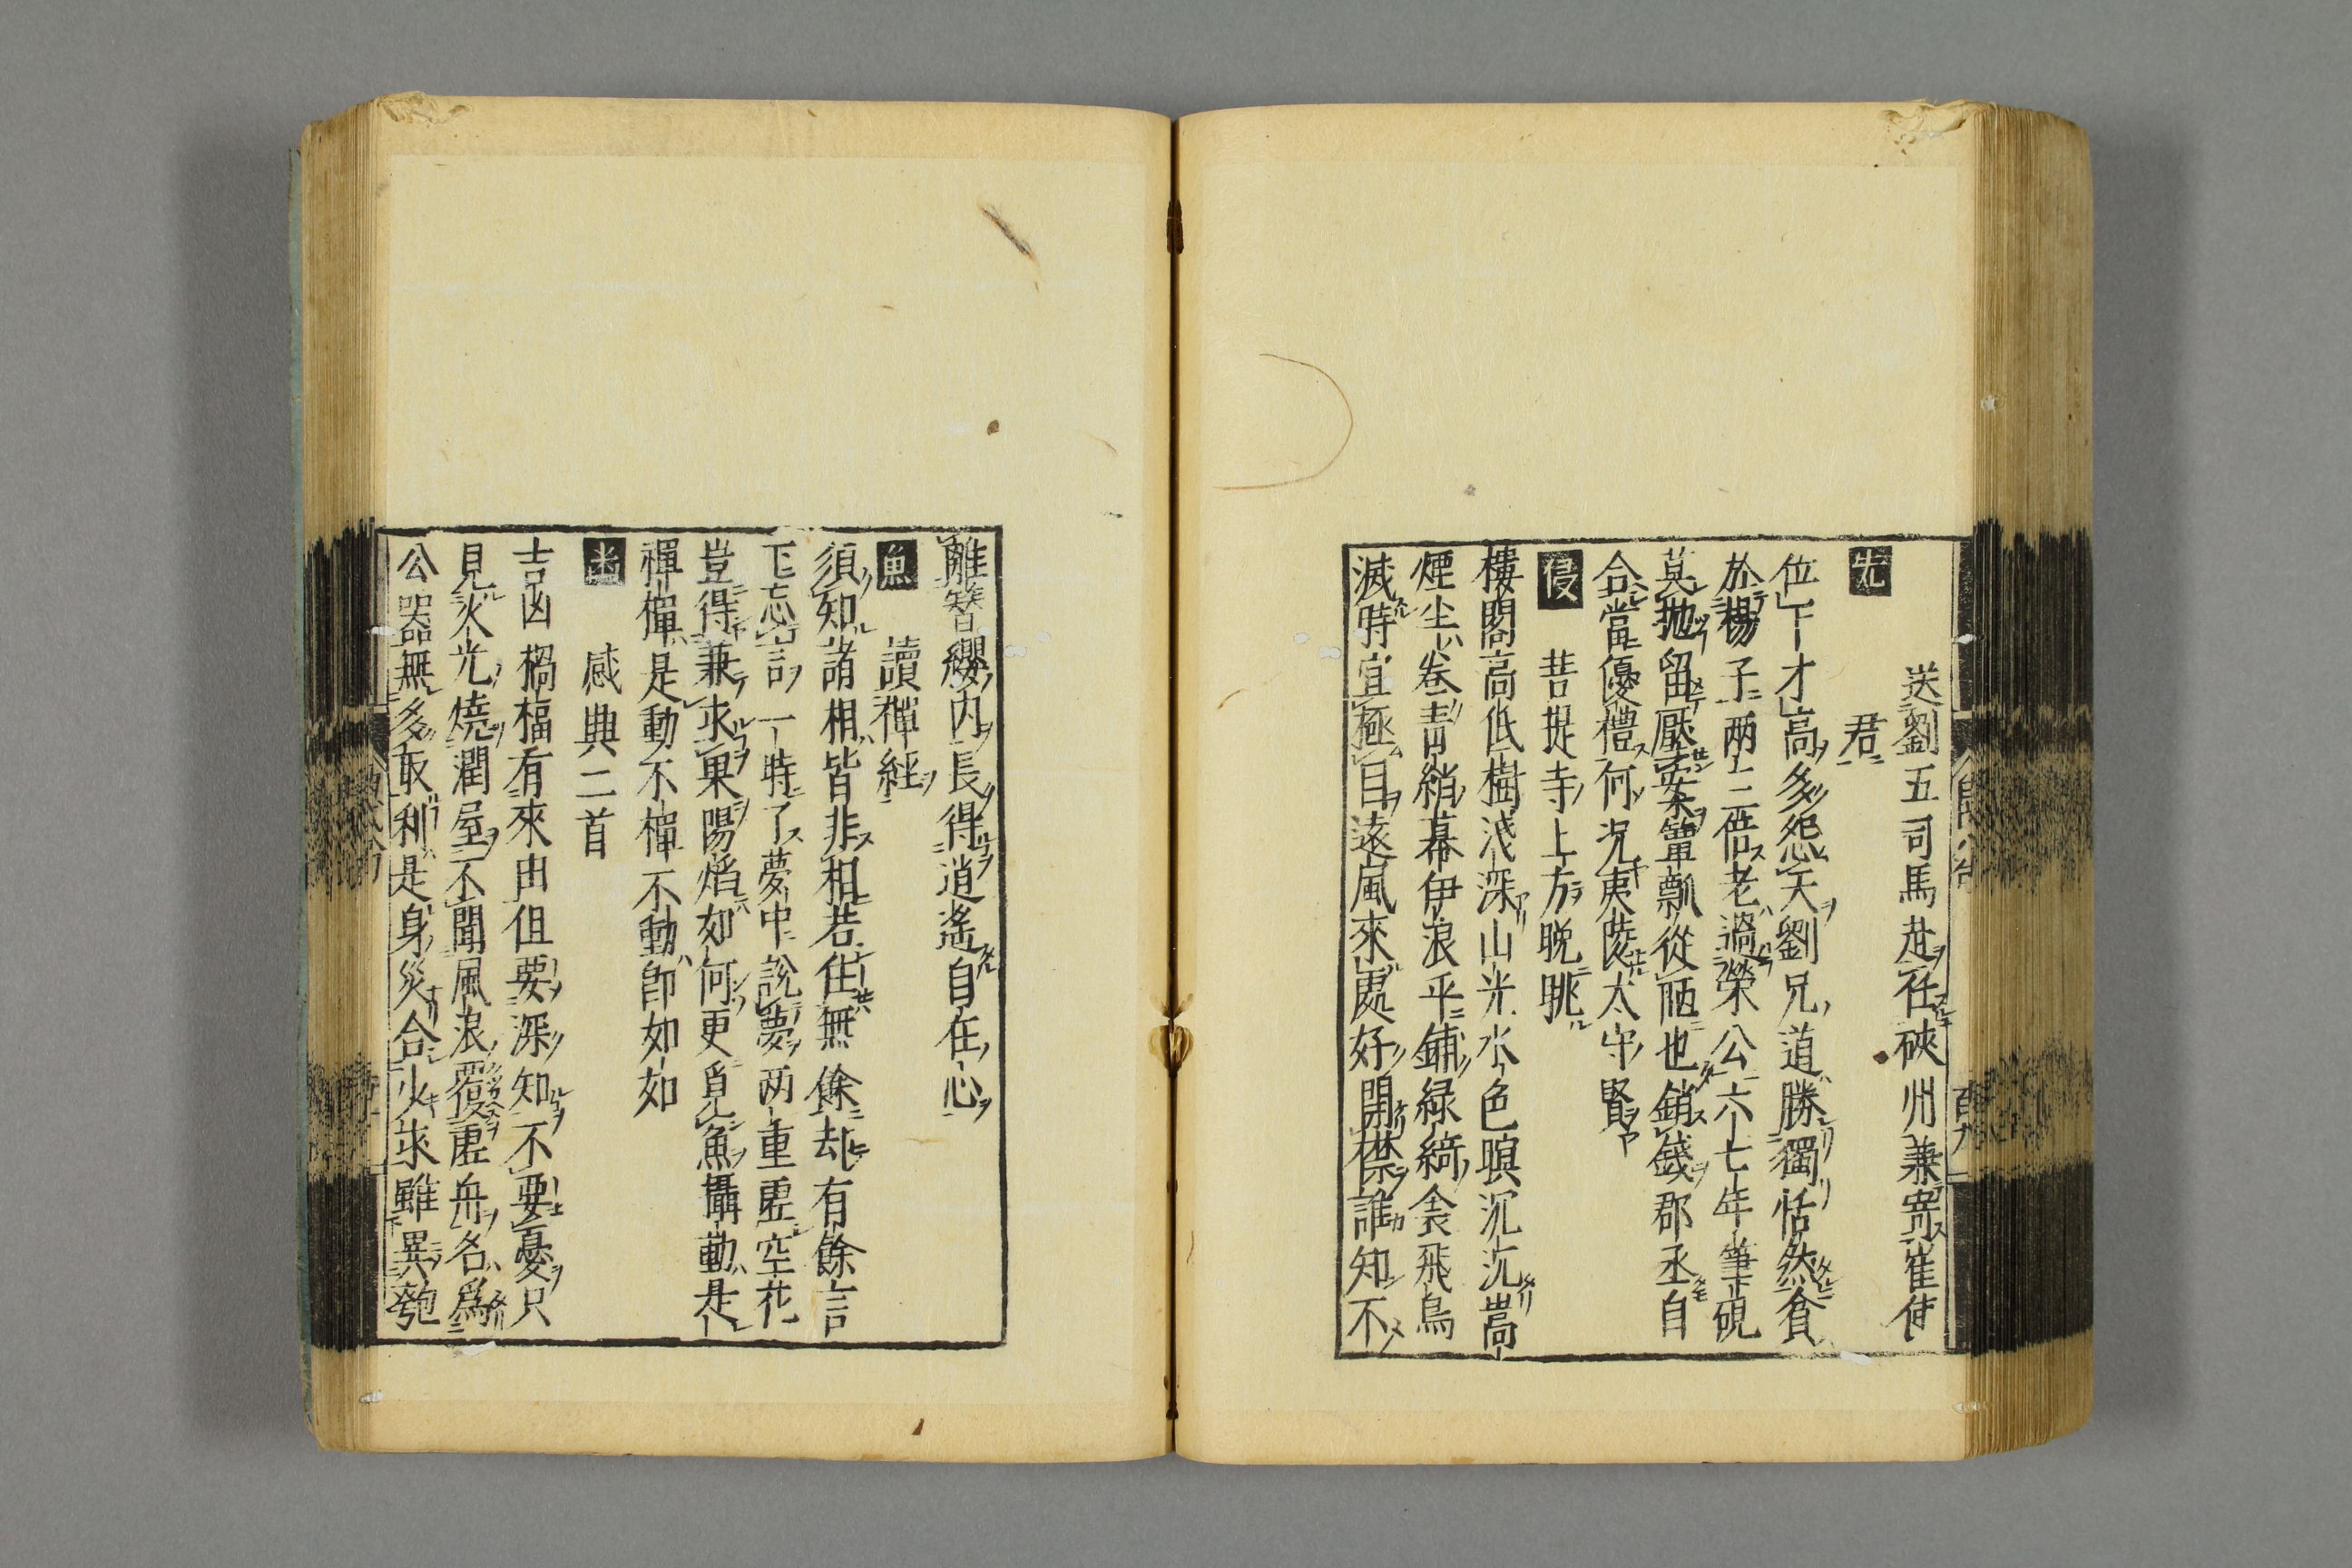 送劉五司馬赴任硤州兼寄崔使
君
先
位下才高多怨天劉兄道勝獨恬然貧
於楊子兩三倍老過榮公六七年筆硯
莫抛留壓案簞瓢從陋也銷錢郡丞自
合當優禮何況夷陵太守賢
侵 菩提寺上方晚眺
樓閣高低樹淺深山光水色暝沉沉嵩
煙尘卷青綃幕伊浪平鋪緑綺衾飛鳥
滅時宜極目遠風來處好開襟誰知不
離簪纓內長得逍遙自在心
魚 讀禪經
須知諸相皆非相若住無餘却有餘言
下忘言一時了夢中說夢兩重虛空花
豈得兼求果陽焰如何更覓魚攝動是
禪禪是動不禪不動即如如
感典二首
吉凶禍福有來由但要深知不要憂只
見火光燒潤屋不聞風浪覆虛舟名為
公器無多取利是身災合少求雖異匏